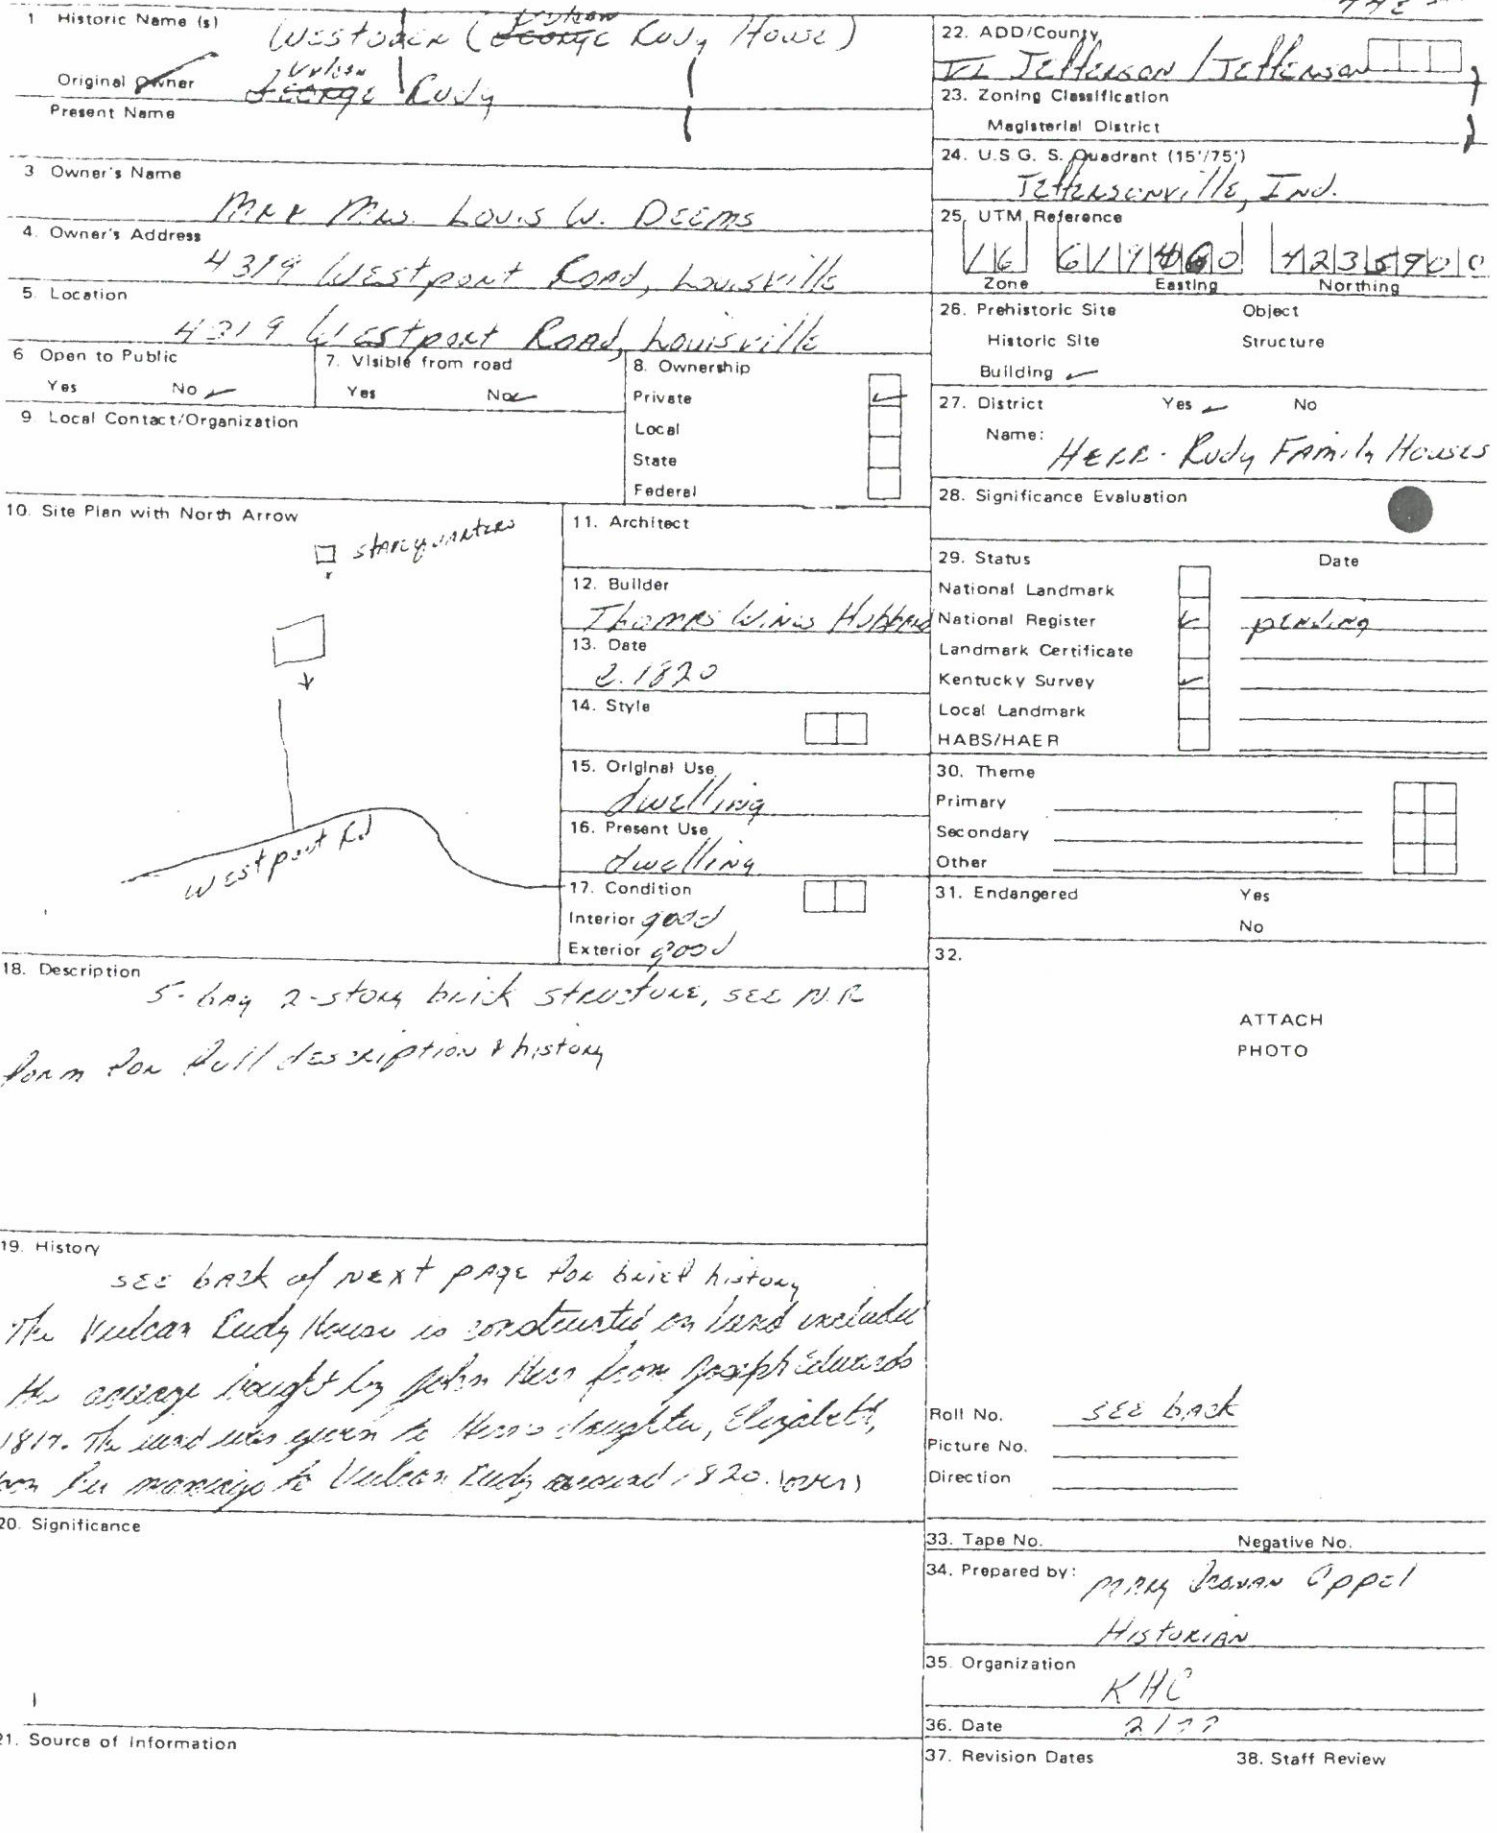 1 Historic Name (s) Westover (George Vulcan Rudy House)
Original Owner George Vulcan Rudy
Present Name
3 Owner's Name
Mr & Mrs. Louis W. Deems
4. Owner's Address
4319 Westport Road, Louisville
5. Location
4319 Westport Road, Louisville
6 Open to Public
Yes No ✓
7. Visible from road
Yes No ✓
8. Ownership
Private ✓
Local
State
Federal
9. Local Contact/Organization
10. Site Plan with North Arrow
Westport Rd
11. Architect
12. Builder
Thomas Wines Hubbard
13. Date
c. 1820
14. Style
15. Original Use
dwelling
16. Present Use
dwelling
17. Condition
Interior good
Exterior good
18. Description
5-bay 2-story brick structure, see N.R
form for full description & history
19. History
see back of next page for brief history
The Vulcan Rudy House is constructed on land included
the acreage bought by John Herr from Joseph Edwards
The land was given to Herr's daughter, Elizabeth,
her marriage to Vulcan Rudy around 1820. (over)
20. Significance
21. Source of Information
22. ADD/County
VI Jefferson / Jefferson
23. Zoning Classification
Magisterial District
24. U.S.G. S. Quadrant (15'/75')
Jeffersonville, Ind.
25. UTM Reference
16
4235900
Zone Easting Northing
26. Prehistoric Site Object
Historic Site Structure
Building ✓
27. District Yes ✓ No
Name: Herr-Rudy Family Houses
28. Significance Evaluation
29. Status Date
National Landmark
National Register ✓ pending
Landmark Certificate
Kentucky Survey ✓
Local Landmark
HABS/HAER
30. Theme
Primary
Secondary
Other
31. Endangered Yes
No
32.
ATTACH
PHOTO
Roll No. see back
Picture No.
Direction
33. Tape No. Negative No.
34. Prepared by: Mary Oppel
Historian
35. Organization
KHC
36. Date
37. Revision Dates 38. Staff Review